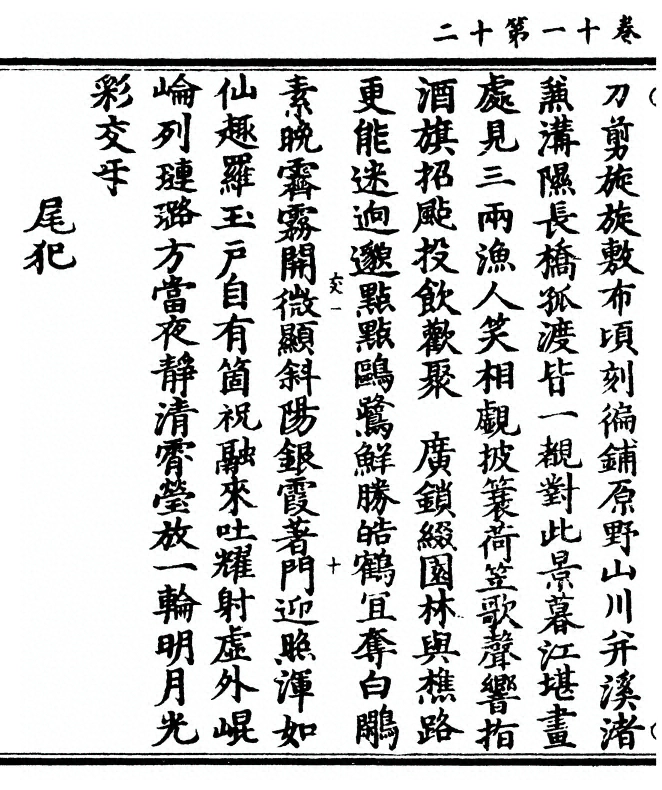 卷十一第十二
刀剪旋旋敷布頃刻徧鋪原野山川并溪渚
蒹溝隰長橋孤渡皆一覩對此景暮江堪畫
處見三兩漁人笑相觀披簑荷笠歌聲響指
酒旗招颭投飲歡聚　廣鎖綴園林與樵路
更能迷逈邈點點鷗鷺鮮勝皓鶴冝奪白鷴
素晚霽霧開微顯斜陽銀霞著門迎煦渾如
仙趣羅玉戶自有箇祝融來吐耀射虛外崐
崘列璉璐方當夜靜清霄瑩放一輪明月光
彩交㸦
尾犯